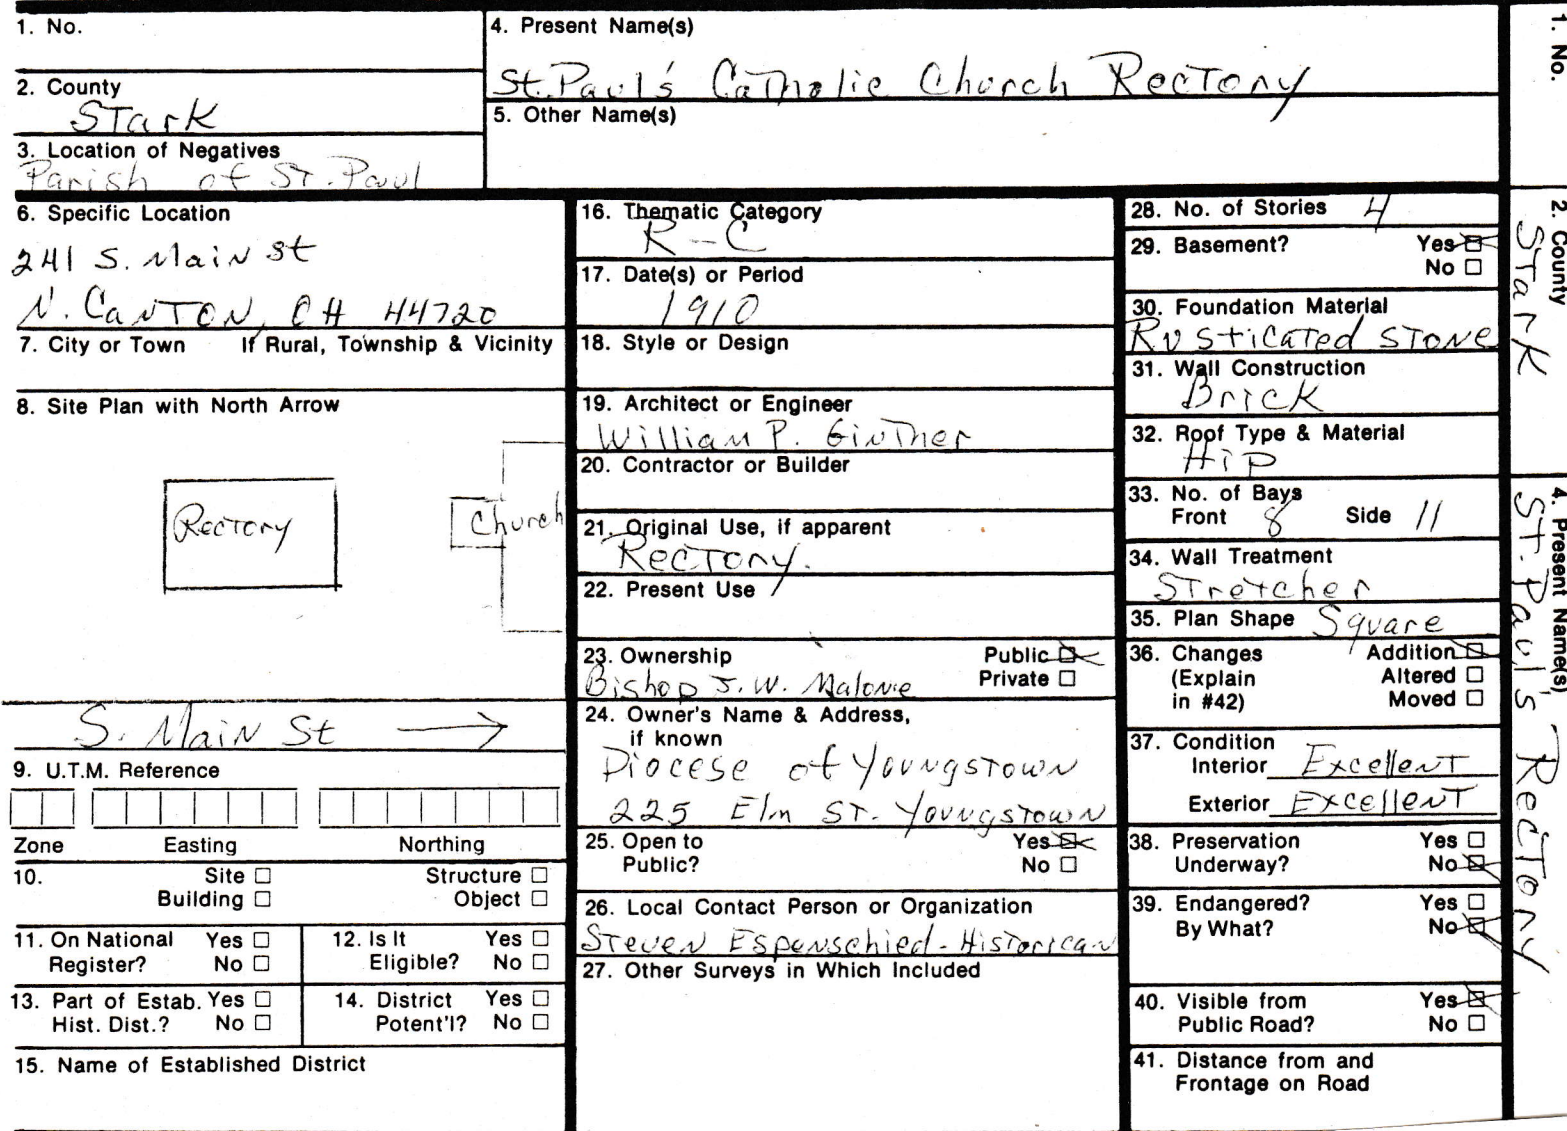 1. No.
2. County
Stark
3. Location of Negatives
Parish of St. Paul
4. Present Name(s)
St. Paul's Catholic Church Rectory
5. Other Name(s)
6. Specific Location
241 S. Main St
N. Canton, OH 44720
7. City or Town If Rural, Township & Vicinity
8. Site Plan with North Arrow
Rectory
Church
S. Main St →
9. U.T.M. Reference
Zone Easting Northing
10. Site ☐ Structure ☐
Building ☐ Object ☐
11. On National Yes ☐
Register? No ☐
12. Is It Yes ☐
Eligible? No ☐
13. Part of Estab. Yes ☐
Hist. Dist.? No ☐
14. District Yes ☐
Potent'l? No ☐
15. Name of Established District
16. Thematic Category
R-C
17. Date(s) or Period
1910
18. Style or Design
19. Architect or Engineer
William P. Ginther
20. Contractor or Builder
21. Original Use, if apparent
Rectory.
22. Present Use
23. Ownership Public ☒
Bishop J. W. Malone Private ☐
24. Owner's Name & Address,
if known
Diocese of Youngstown
225 Elm St. Youngstown
25. Open to Yes ☒
Public? No ☐
26. Local Contact Person or Organization
Steven Espenschied-Historican
27. Other Surveys in Which Included
28. No. of Stories 4
29. Basement? Yes ☒
No ☐
30. Foundation Material
Rusticated Stone
31. Wall Construction
Brick
32. Roof Type & Material
Hip
33. No. of Bays
Front 8 Side 11
34. Wall Treatment
Stretcher
35. Plan Shape Square
36. Changes Addition ☒
(Explain Altered ☐
in #42) Moved ☐
37. Condition
Interior Excellent
Exterior Excellent
38. Preservation Yes ☐
Underway? No ☒
39. Endangered? Yes ☐
By What? No ☒
40. Visible from Yes ☒
Public Road? No ☐
41. Distance from and
Frontage on Road
1. No.
2. County
Stark
4. Present Name(s)
St. Paul's Rectory